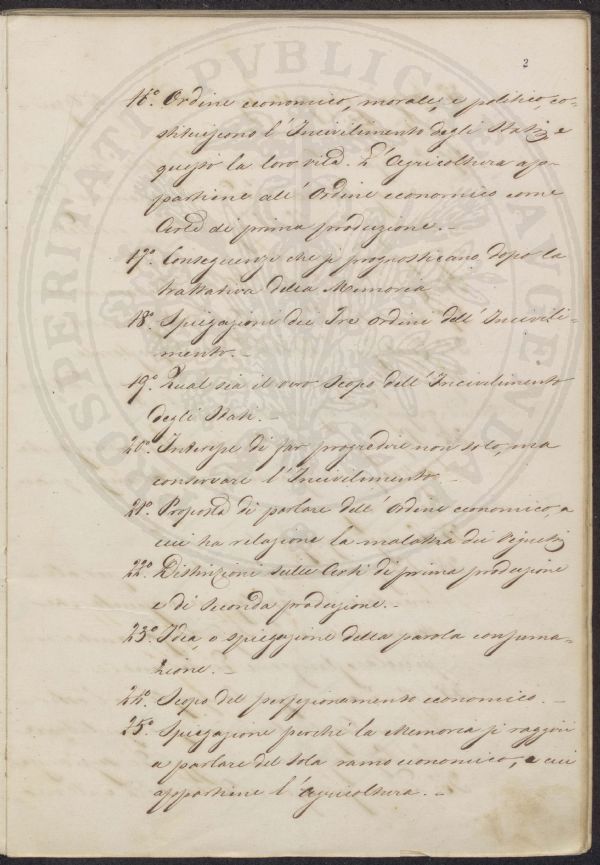 2
16.° Ordine economico, morale, e politico, co-
stituiscono l'Incivilimento degli Stati, e
questo la loro vita. L'Agricoltura ap-
partiene all'Ordine economico come
Arte di prima produzione. _
17.° Conseguenze che si prognosticano dopo la
trattativa della Memoria
18.° Spiegazioni dei Tre Ordini dell'Incivili-
mento. _
19.° Qual sia il vero Scopo dell'Incivilimento
degli Stati. _
20.° Interesse di far progredire non solo, ma
conservare l'Incivilimento _
21.° Proposta di parlare dell'Ordine economico, a
cui ha relazione la malattia dei
22.° Distinzioni sulle Arti di prima produzione
e di Seconda produzione. _
23.° Idea, o spiegazione della parola consuma-
zione. _
24.° Scopo del perfezionamento economico. _
25.° Spiegazione perchè la Memoria si raggiri
a parlare del solo ramo economico, a cui
appartiene l'Agricoltura. _
PROSPERITATI PVBLICAE AVGENDAE